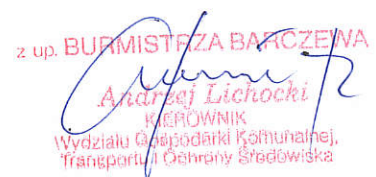 z up. BURMISTRZA BARCZEWA
Andrzej Lichocki
KIEROWNIK
Wydziału Gospodarki Komunalnej,
Transportu i Ochrony Środowiska